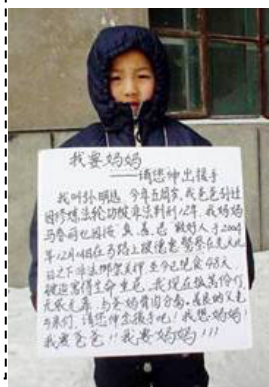 我要妈妈
——请您伸出援手
我叫孙明远 今年五周岁,我爸爸孙
因修炼法轮功被非法判刑12年。我妈妈
马春 也因按真、善、忍 做好人于2004
年12月 日在马路上被德惠警察在光天化
日之下非法绑架关押 至今已绝食48天
被迫害得生命垂危。我现在孤苦伶仃
无依无靠,与爸妈骨肉分离。善良的父老
乡亲们,请您伸出援手吧!我想妈妈!
我要爸爸!!我要妈妈!!!